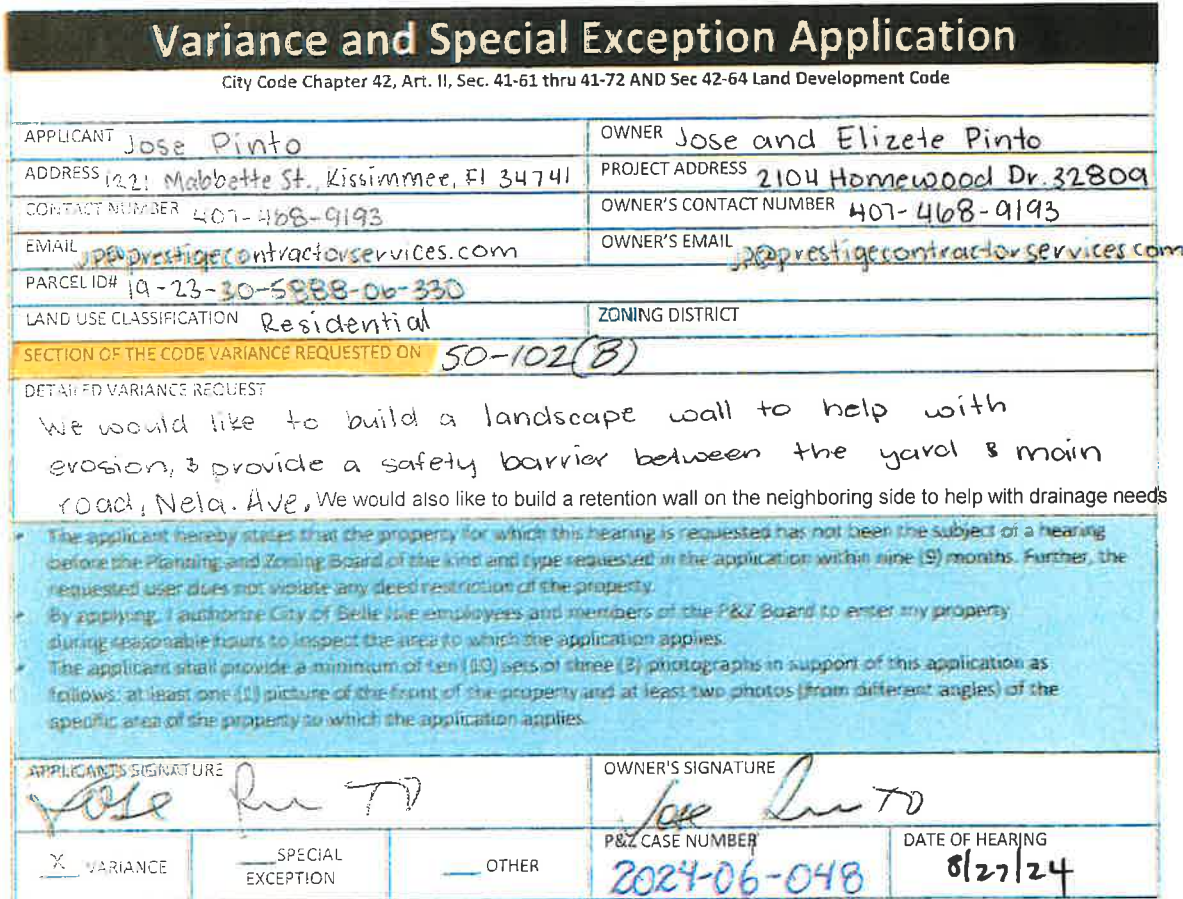 Variance and Special Exception Application
City Code Chapter 42, Art. II, Sec. 41-61 thru 41-72 AND Sec 42-64 Land Development Code
APPLICANT Jose Pinto
OWNER Jose and Elizete Pinto
ADDRESS 1221 Mabbette St., Kissimmee, Fl 34741
PROJECT ADDRESS 2104 Homewood Dr. 32809
CONTACT NUMBER 407-468-9193
OWNER'S CONTACT NUMBER 407-468-9193
EMAIL jp@prestigecontractorservices.com
OWNER'S EMAIL jp@prestigecontractorservices.com
PARCEL ID# 19-23-30-5888-06-330
LAND USE CLASSIFICATION Residential
ZONING DISTRICT
SECTION OF THE CODE VARIANCE REQUESTED ON 50-102(B)
DETAILED VARIANCE REQUEST
We would like to build a landscape wall to help with
erosion, & provide a safety barrier between the yard & main
road, Nela. Ave. We would also like to build a retention wall on the neighboring side to help with drainage needs
• The applicant hereby states that the property for which this hearing is requested has not been the subject of a hearing
before the Planning and Zoning Board of the kind and type requested in the application within nine (9) months. Further, the
requested user does not violate any deed restriction of the property.
• By applying, I authorize City of Belle Isle employees and members of the P&Z Board to enter my property
during reasonable hours to inspect the area to which the application applies.
• The applicant shall provide a minimum of ten (10) sets of three (3) photographs in support of this application as
follows: at least one (1) picture of the front of the property and at least two photos (from different angles) of the
specific area of the property to which the application applies.
APPLICANTS SIGNATURE Jose Pinto
OWNER'S SIGNATURE Jose Pinto
X VARIANCE
___ SPECIAL
EXCEPTION
___ OTHER
P&Z CASE NUMBER
2024-06-048
DATE OF HEARING
8/27/24